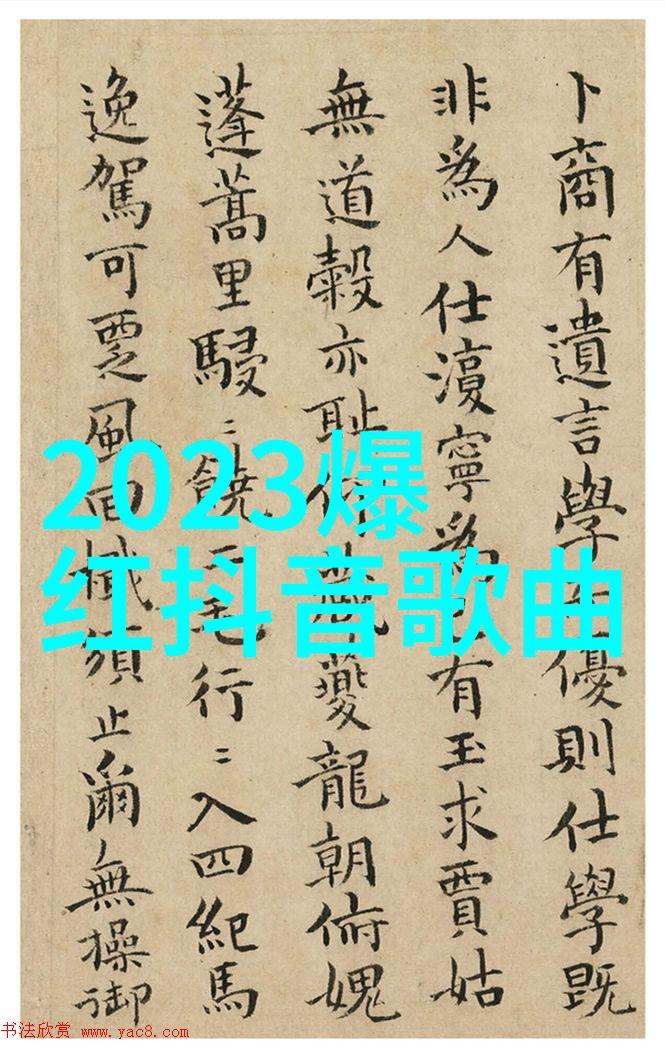 卜商有遺言學優則仕學既
非為人仕寧為有玉求賈姑
無道穀亦耻夔龍朝俯媿
蓬蒿里駸〻饒二毛行〻入四紀馬
逸駕可覂風回檝須止爾無操御
2023爆
红抖音歌曲
书法欣赏 www.yac8.com